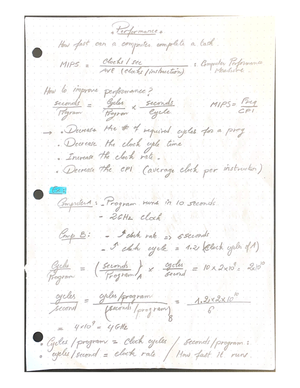 • Performance •
How fast can a computer complete a task.
MIPS = Clocks / sec / AVE (clocks/instruction) : Computer Performance Measure
How to improve performance?
seconds / Program = cycles / Program × seconds / Cycle MIPS = Freq / CPI
→ • Decrease the # of required cycles for a prog
• Decrease the clock cycle time
• Increase the clock rate.
• Decrease the CPI (average clock per instruction)
Computer A : - Program runs in 10 seconds
- 2GHz clock
Comp. B: - clock rate 6 seconds
- clock cycle = 1.2 (Clock cycle of A)
Cycle / Program = (seconds / Program) A × cycles / second = 10 × 2×10⁹
cycles / second = cycles/program / (seconds/program) B = 6
= 4×10⁹ = 4GHz
• Cycles / program = Clock cycles / seconds / program :
• cycles/second = clock rate / How fast it runs.